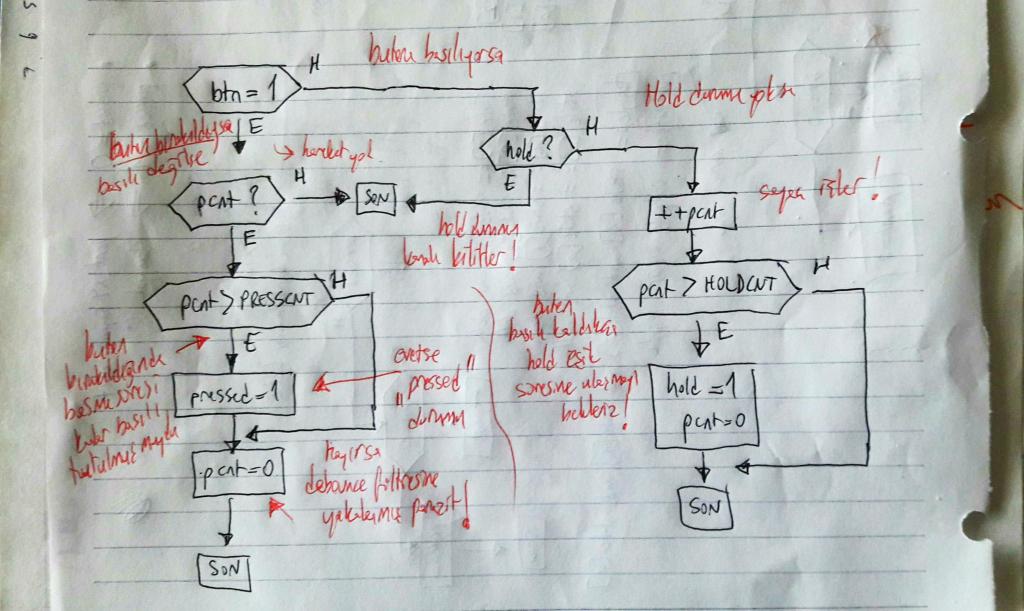 H
buton basılıyorsa
btn = 1
Hold durumu yoksa
E
H
buton bırakıldıysa
basılı değilse
hareket yok
hold ?
H
E
pcnt ?
SON
sayaç işler!
++pcnt
hold durumu
kilitler!
E
H
H
pcnt > PRESSCNT
pcnt > HOLDCNT
buton
basılı kaldıkça
hold eşit
süresine ulaşmayı
bekleriz!
E
E
buton
bırakıldığında
basma süresi
kadar basılı
tutulmuş muydu
evetse
"pressed"
durumu
pressed = 1
hold = 1
pcnt = 0
hayırsa
debounce filtresine
yakalanmış parazit!
pcnt = 0
SON
SON